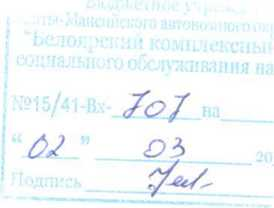 Бюджетное учрежд
ты-Мансийского автономного окр
"Белоярский комплексны
социального обслуживания на
№15/41-Вх- 707 на
"02" 03 20
Подпись